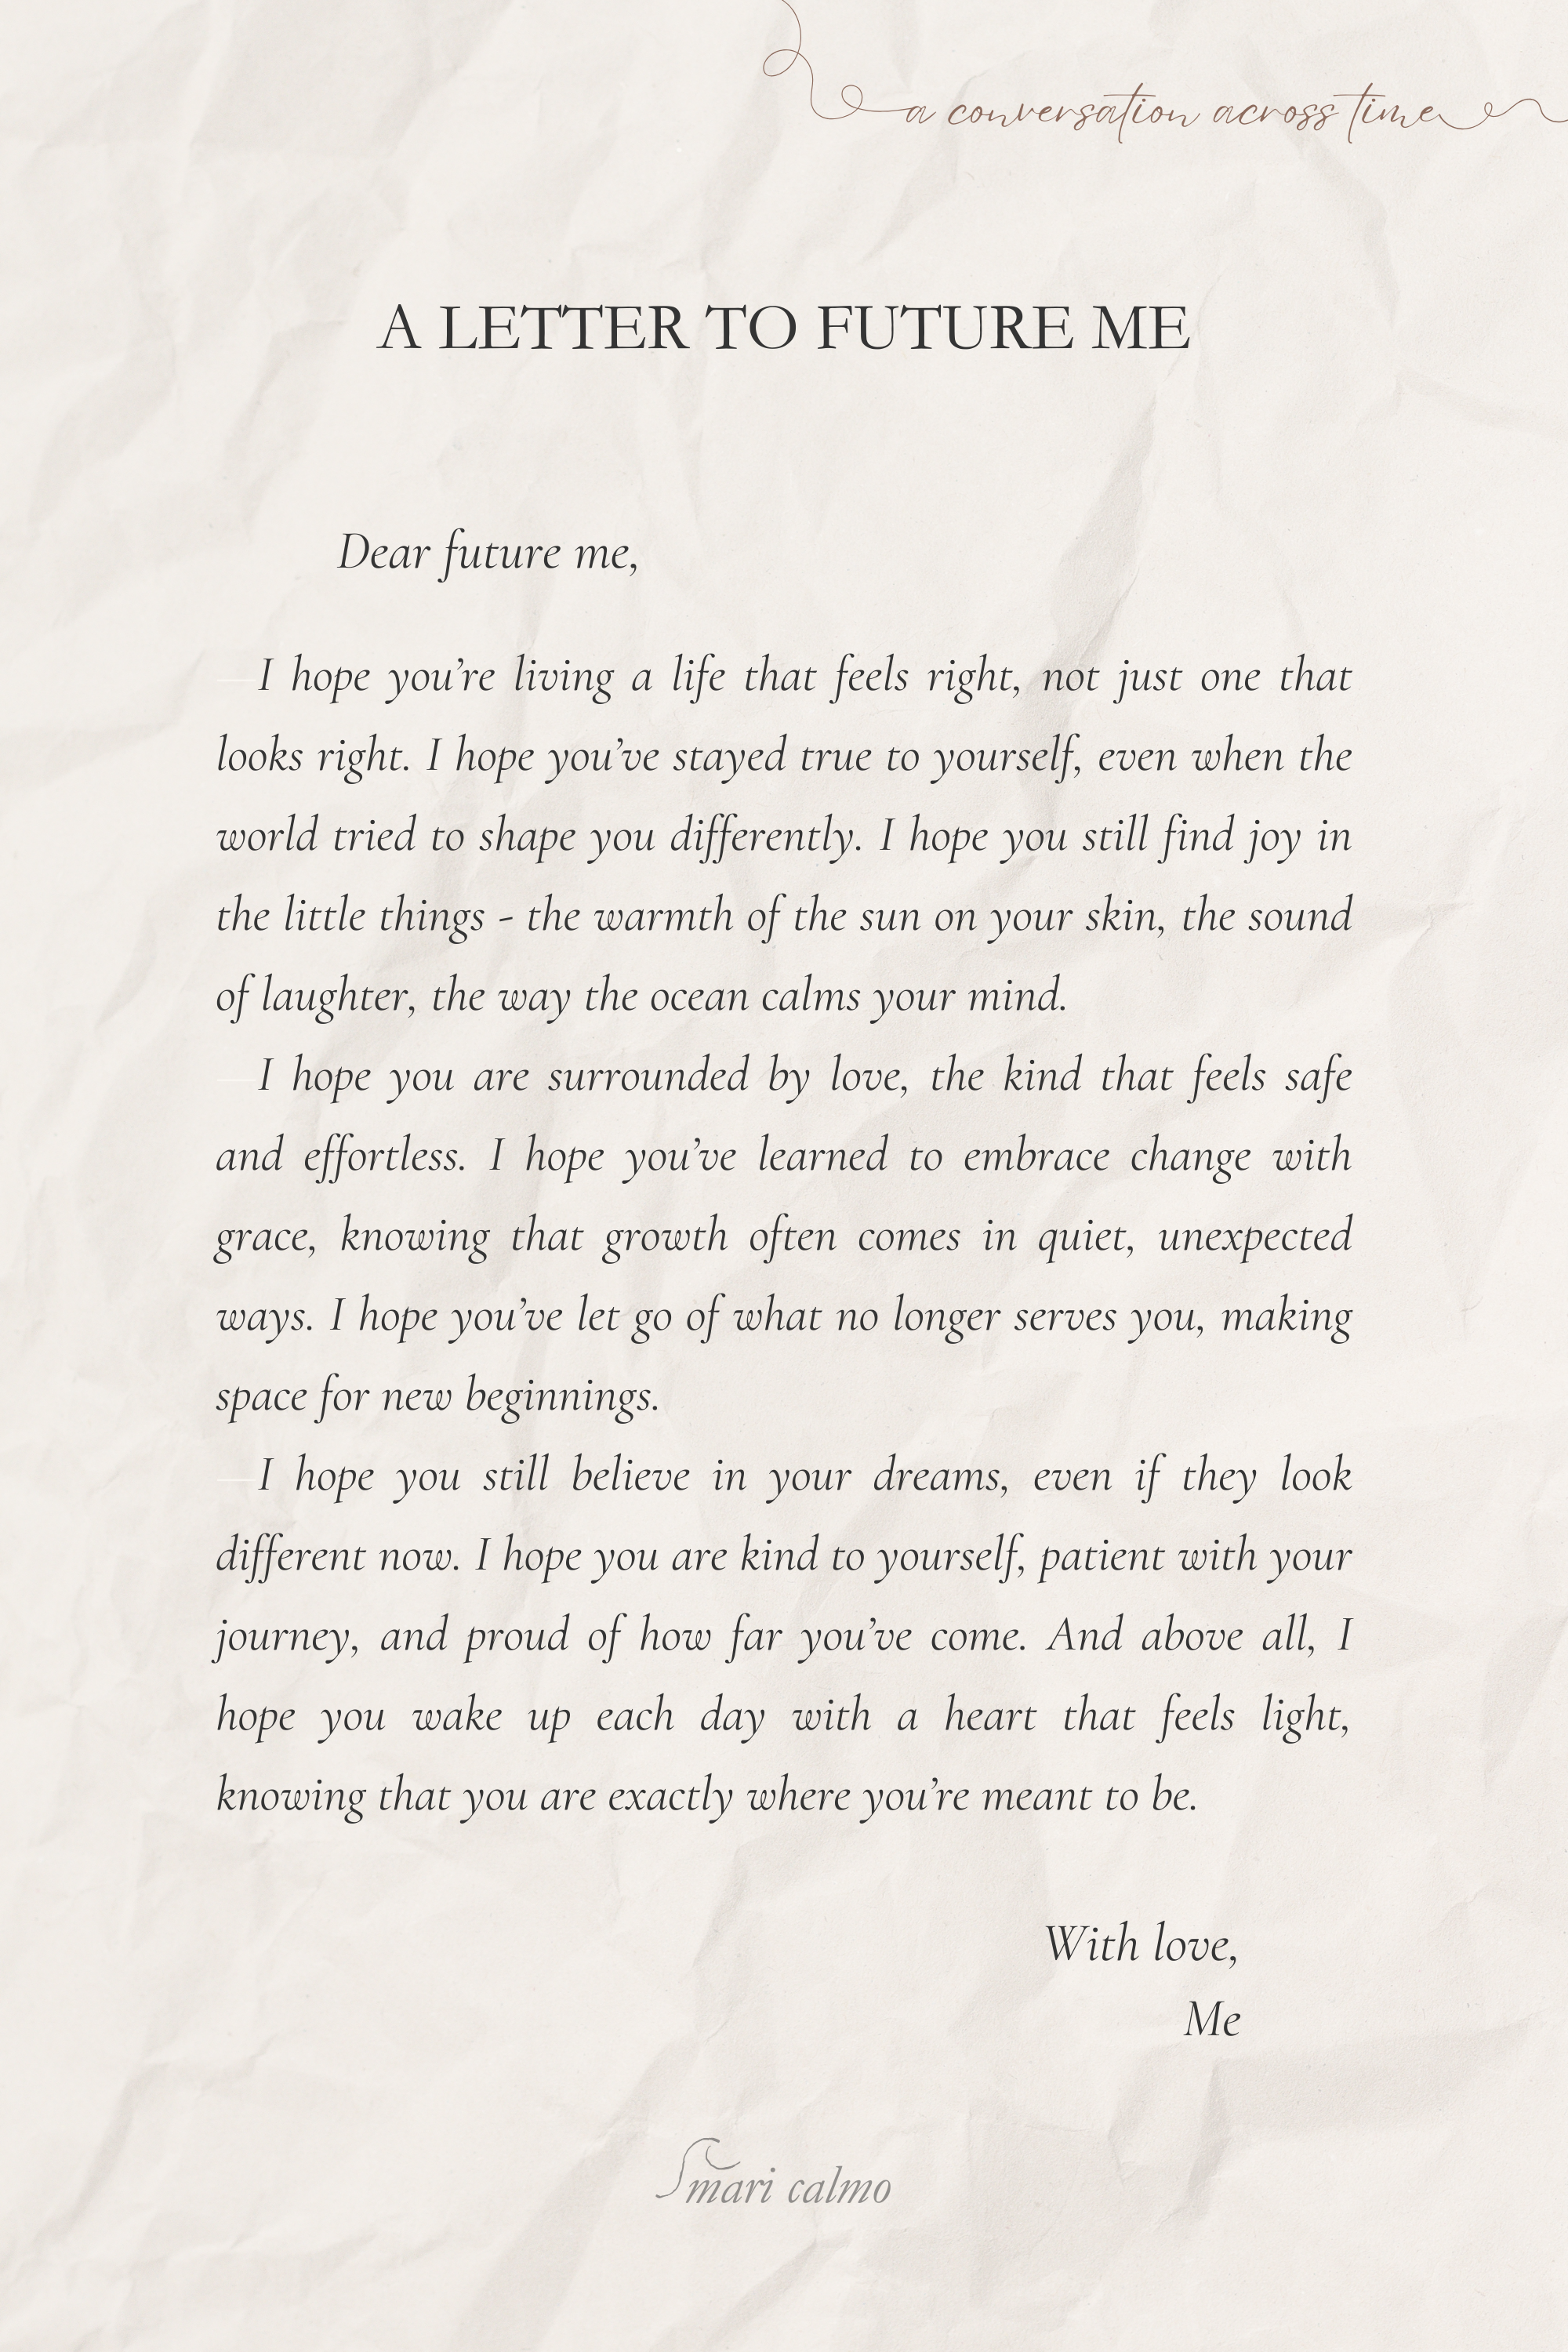 a conversation across time
A LETTER TO FUTURE ME
Dear future me,
I hope you’re living a life that feels right, not just one that
looks right. I hope you’ve stayed true to yourself, even when the
world tried to shape you differently. I hope you still find joy in
the little things - the warmth of the sun on your skin, the sound
of laughter, the way the ocean calms your mind.
I hope you are surrounded by love, the kind that feels safe
and effortless. I hope you’ve learned to embrace change with
grace, knowing that growth often comes in quiet, unexpected
ways. I hope you’ve let go of what no longer serves you, making
space for new beginnings.
I hope you still believe in your dreams, even if they look
different now. I hope you are kind to yourself, patient with your
journey, and proud of how far you’ve come. And above all, I
hope you wake up each day with a heart that feels light,
knowing that you are exactly where you’re meant to be.
With love,
Me
mari calmo